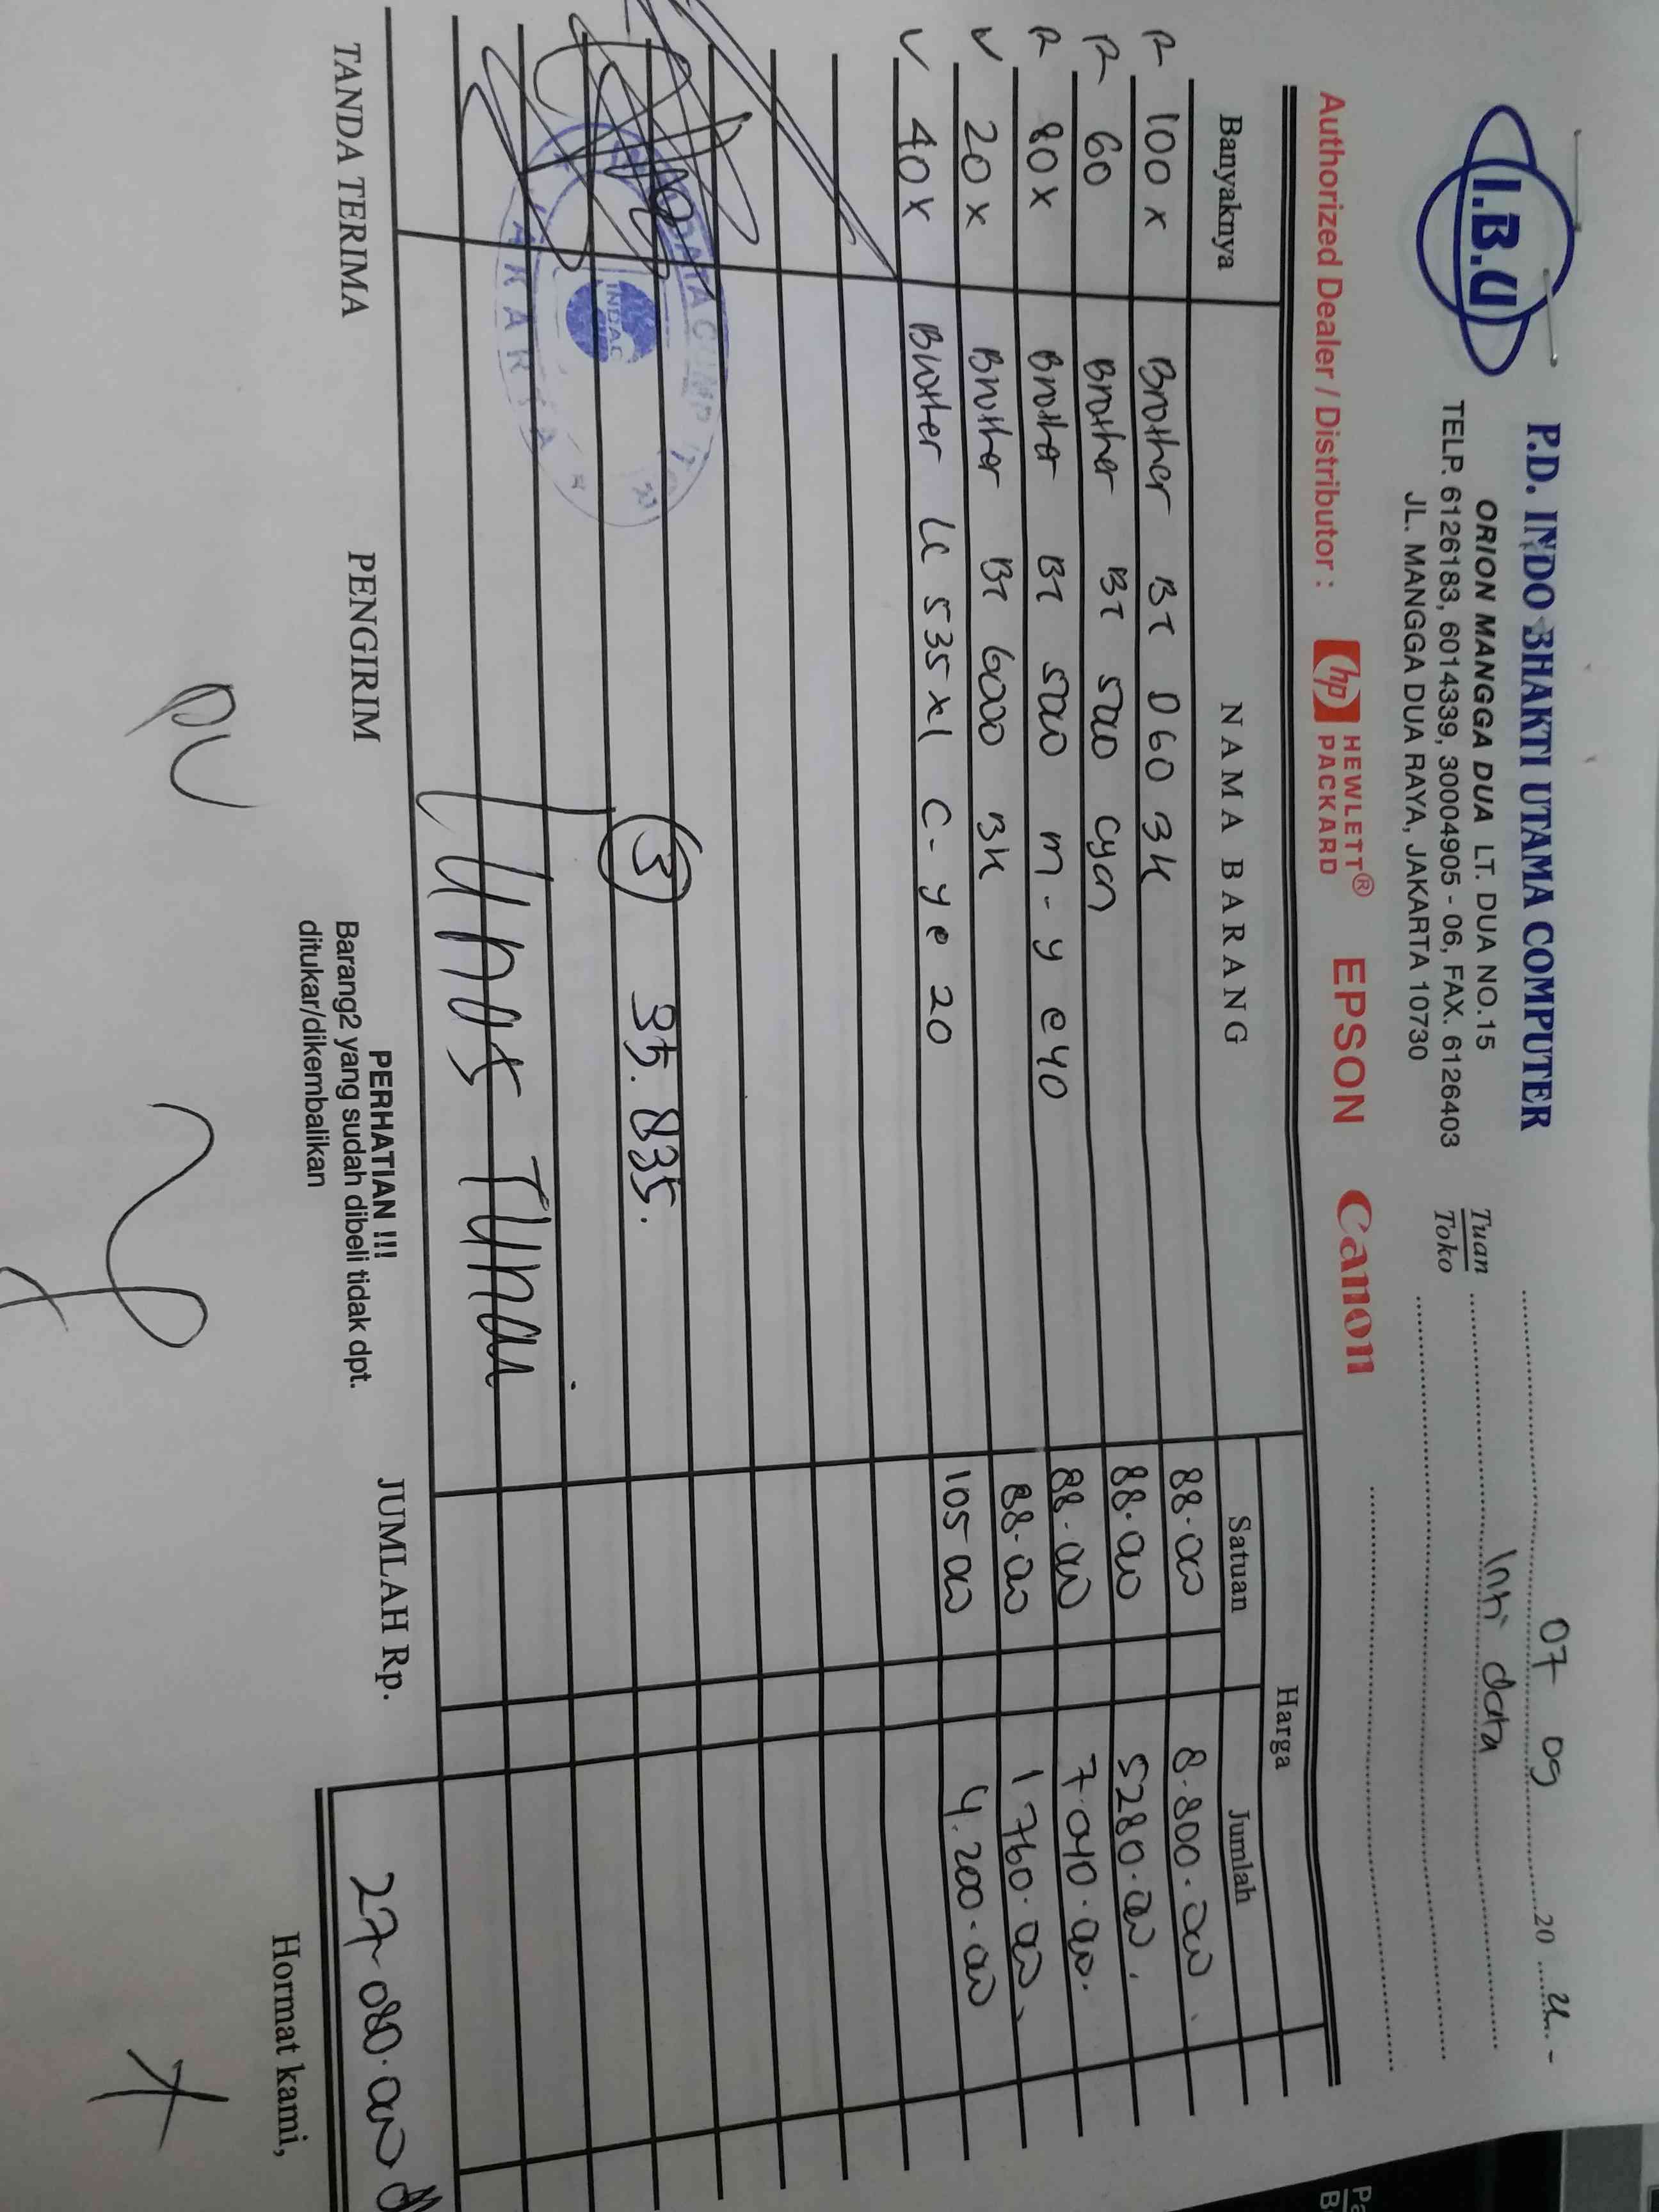 I.B.U
P.D. INDO BHAKTI UTAMA COMPUTER
ORION MANGGA DUA LT. DUA NO.15
TELP. 6126183, 6014339, 30004905 - 06, FAX. 6126403
JL. MANGGA DUA RAYA, JAKARTA 10730
07 09 20
Tuan
Toko
Inti data
Authorized Dealer / Distributor : hp HEWLETT® PACKARD EPSON Canon
Banyaknya NAMA BARANG Harga
Satuan Jumlah
100 x Brother BT D60 BK 88.000 8.800.000.
60 Brother BT 5000 Cyan 88.000 5280.000.
80 x Brother BT 5000 m - y @ 40 88.000 7.040.000.
20 x Brother BT 6000 BK 88.000 1760.000.
40 x Brother LC 535 xl C - y @ 20 105000 4.200.000
INDAC
3 35.835.
Lunas Tunai
TANDA TERIMA PENGIRIM JUMLAH Rp. 27.080.000
PERHATIAN !!!
Barang2 yang sudah dibeli tidak dpt.
ditukar/dikembalikan
Hormat kami,